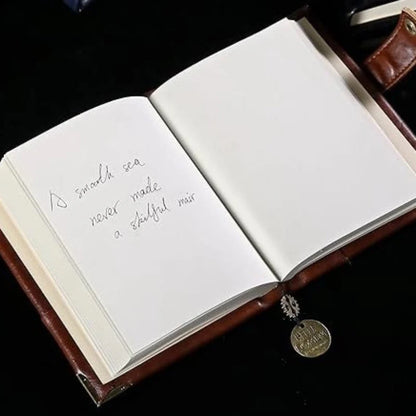 A smooth sea
never made
a skilful mair